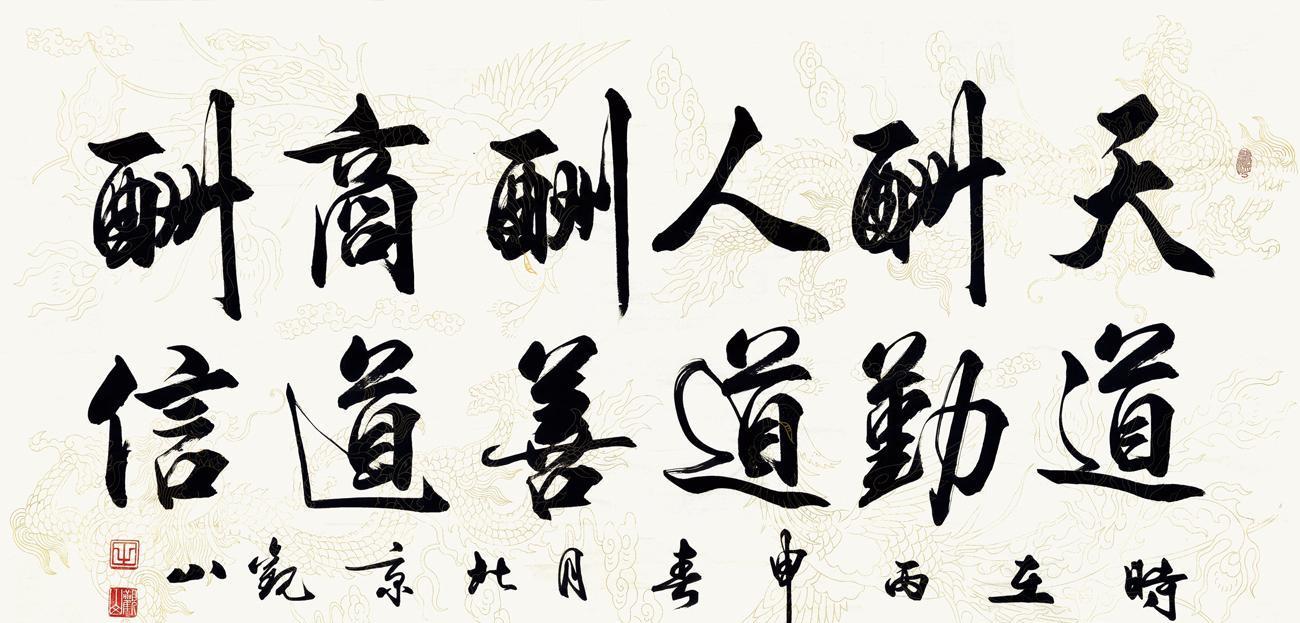 天道
酬勤
人道
酬善
商道
酬信
時在丙申春月北京觀山